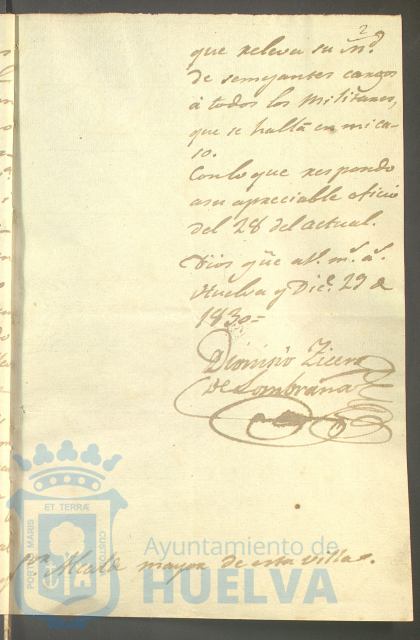 29
que releva su M.d
de semejantes cargos
á todos los Militares,
que se hallã en mi ca-
so.
Con lo que respondo
a su apreciable oficio
del 28 del actual.
Dios gũe a V. m.s a.s
Huelva y Dic.e 29 de
1830=
Dionisio
de Lombraña
ET TERRÆ
PORTUS MARIS
CUSTODIA
Ayuntamiento de
HUELVA
Alcalde mayor de esta villa.